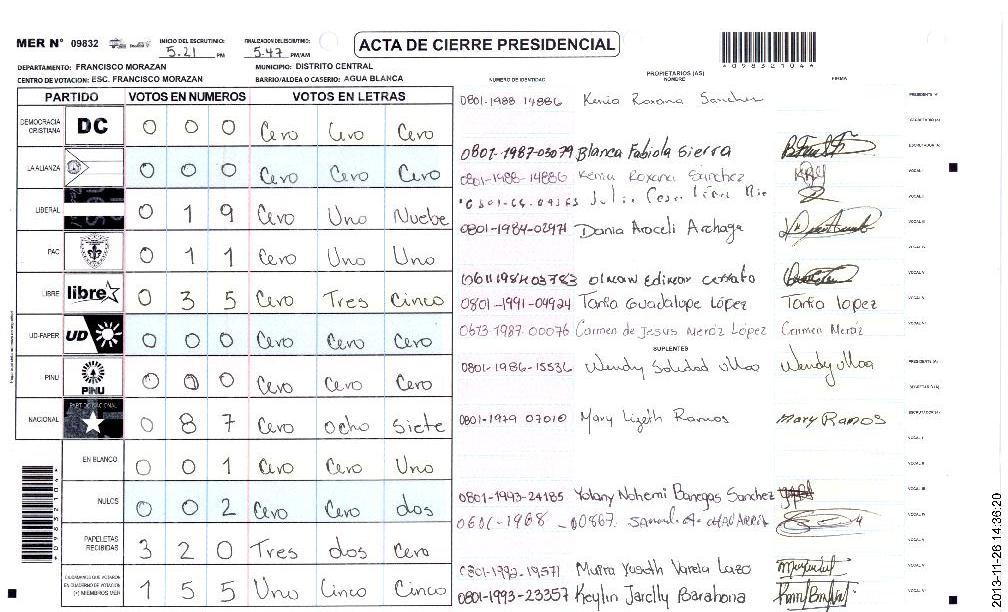 MER N° 09832
INICIO DEL ESCRUTINIO: 5.21 PM
FINALIZACION DEL ESCRUTINIO: 5.47 PM/AM
ACTA DE CIERRE PRESIDENCIAL
*098321044*
DEPARTAMENTO: FRANCISCO MORAZAN
MUNICIPIO: DISTRITO CENTRAL
CENTRO DE VOTACION: ESC. FRANCISCO MORAZAN
BARRIO/ALDEA O CASERIO: AGUA BLANCA
NUMERO DE IDENTIDAD
PROPIETARIOS (AS)
NOMBRE
FIRMA
PARTIDO VOTOS EN NUMEROS VOTOS EN LETRAS
DEMOCRACIA CRISTIANA DC 0 0 0 Cero Cero Cero
LA ALIANZA 0 0 0 Cero Cero Cero
LIBERAL 0 1 9 Cero Uno Nuebe
PAC 0 1 1 Cero Uno Uno
LIBRE libre 0 3 5 Cero Tres Cinco
UD-FAPER UD 0 0 0 Cero Cero Cero
PINU PINU 0 0 0 Cero Cero Cero
NACIONAL PARTIDO NACIONAL 0 8 7 Cero Ocho Siete
EN BLANCO 0 0 1 Cero Cero Uno
NULOS 0 0 2 Cero Cero dos
PAPELETAS RECIBIDAS 3 2 0 Tres dos Cero
CIUDADANOS QUE VOTARON EN CUADERNO DE VOTACION (+) MIEMBROS MER 1 5 5 Uno Cinco Cinco
0801-1988 14886 Kenia Roxana Sanchez
0801-1987-03079 Blanca Fabiola Sierra
0801-1988-14886 Kenia Roxana Sánchez
0801-1984-02971 Dania Araceli Archaga
0801-1991-04924 Tania Guadalupe López Tania lopez
0613-1987-00076 Carmen de Jesus Meráz López Carmen Meráz
SUPLENTES
0801-1986-15536 Wendy Soledad Wendy
0801-1979 07010 Mary Lizeth Ramos Mary Ramos
0801-1993-24185 Yolany Nohemi Banegas Sanchez
Yuseth Varela Lazo
0801-1993-23357 Keylin Jarelly Barahona
2013-11-26 14:36:20